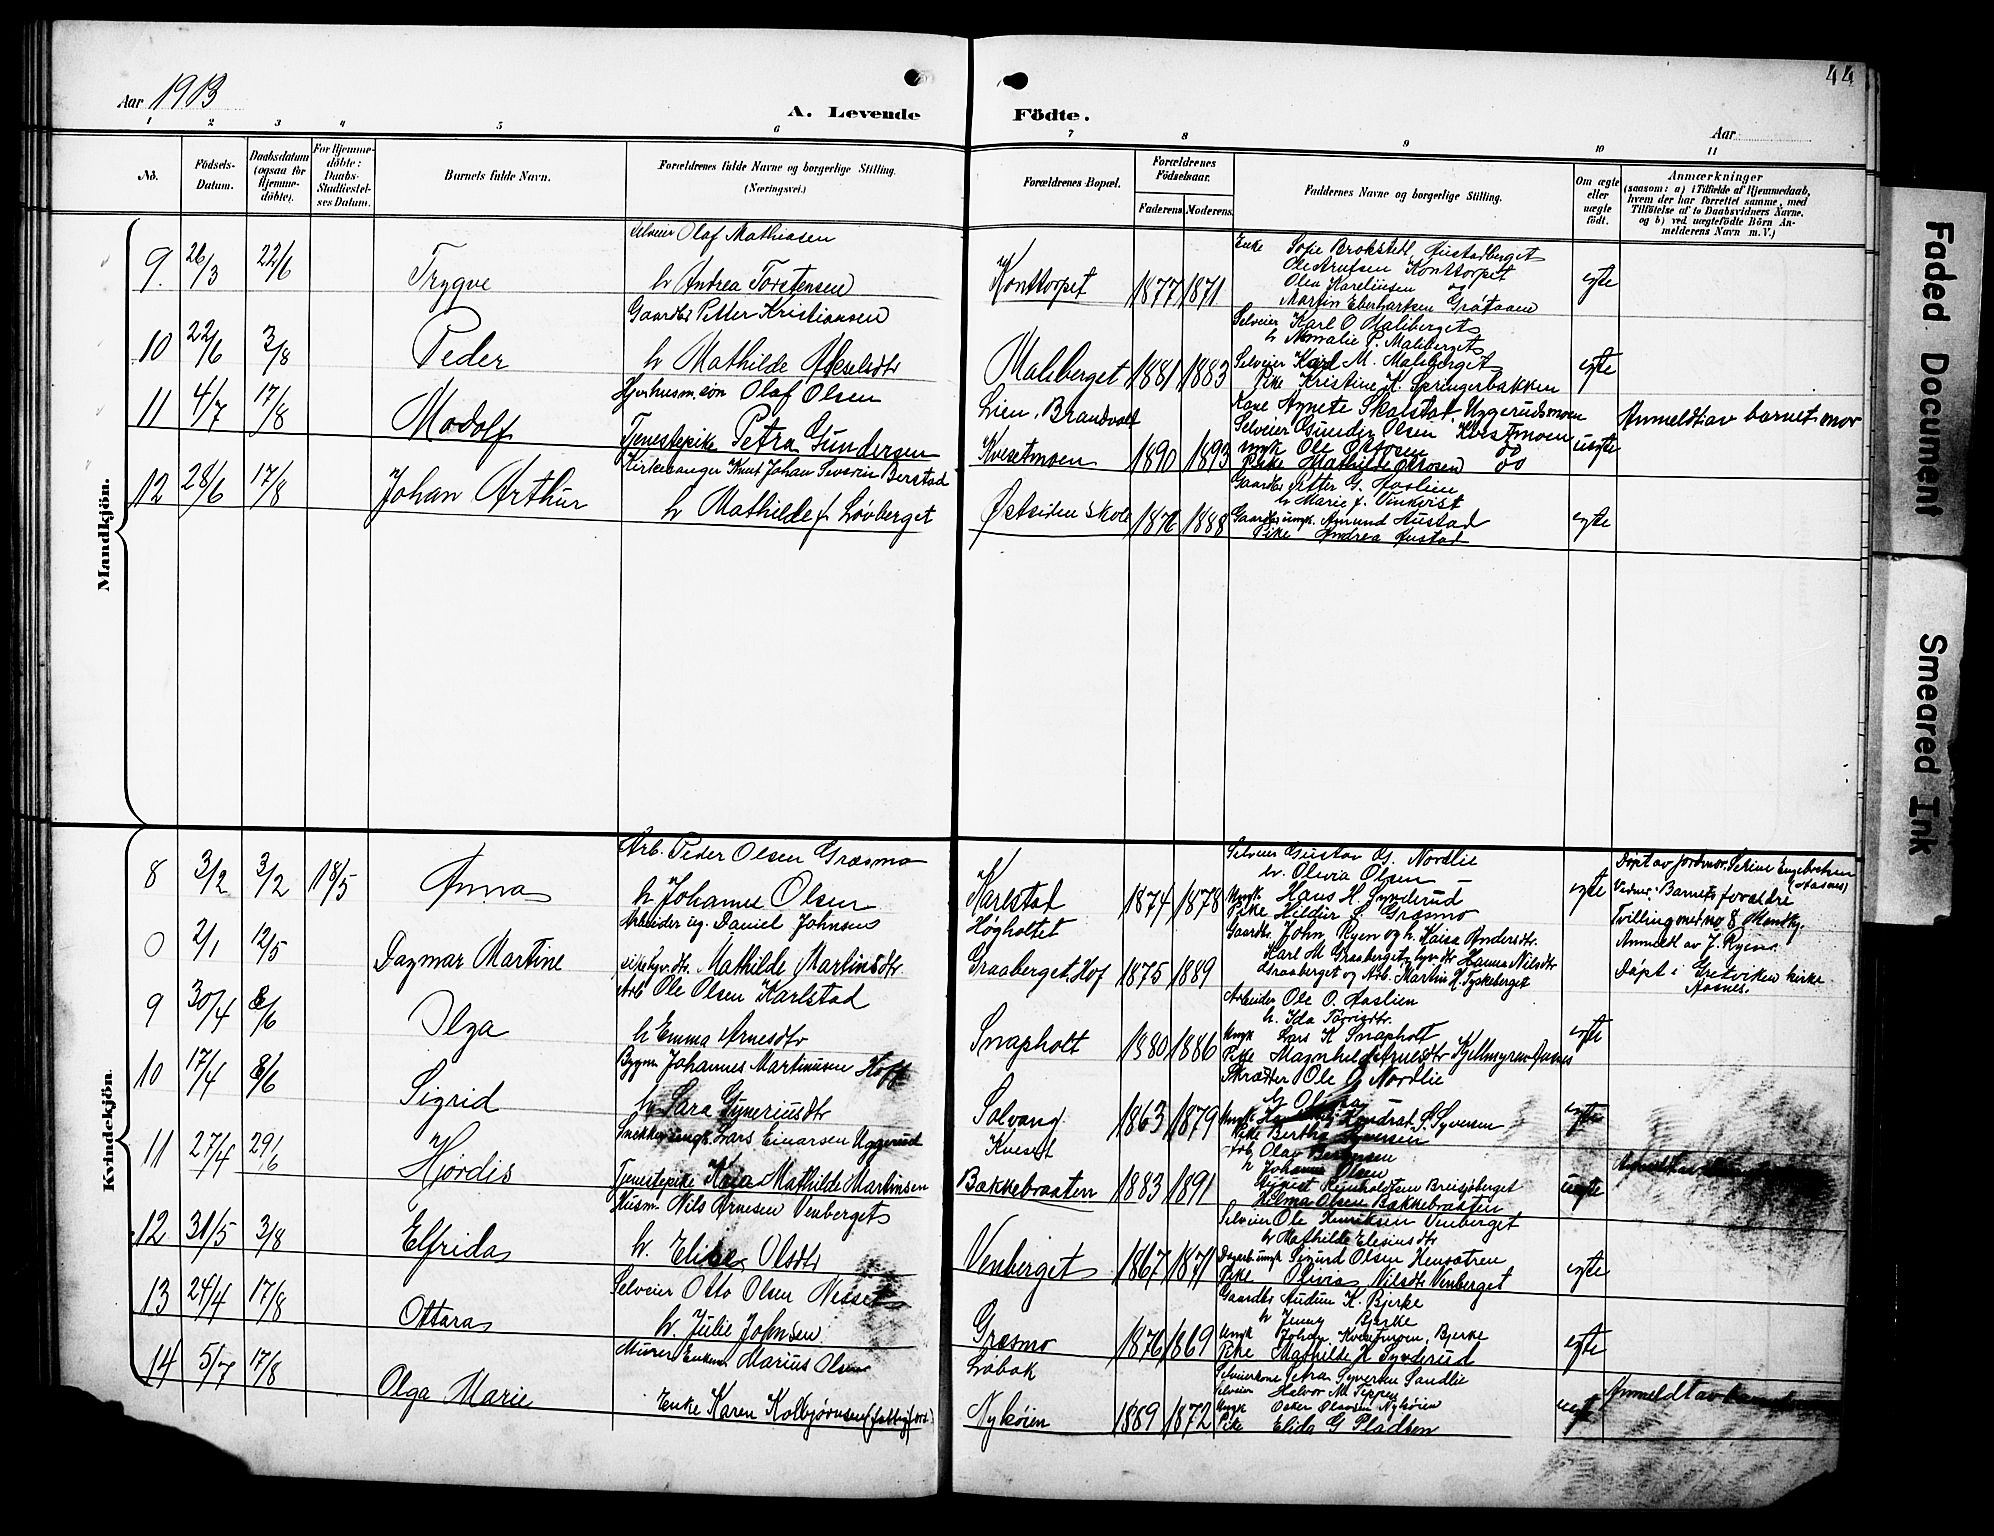 44
Aar 1913
A. Levende Födte.
Aar
1 2 3 4 5 6 7 8 9 10 11
No.
Födsels-Datum.
Daabsdatum (ogsaa for Hjemme-döbte).
For Hjemme-döbte: Daabs-Stadfæstel-ses Datum.
Barnets fulde Navn.
Forældrenes fulde Navne og borgerlige Stilling. (Næringsvei.)
Forældrenes Bopæl.
Forældrenes Födselsaar.
Faderens Moderens
Faddernes Navne og borgerlige Stilling.
Om ægte eller uægte födt.
Anmærkninger
(saasom: a) i Tilfælde af Hjemmedaab, hvem der har forrettet samme, med Tilföielse af to Daabsvidners Navne, og b) ved uægtefödte Börn An-melderens Navn m. V.)
Mandkjön.
9. 26/3 22/6 Trygve
Selveier Olaf Mathiasen
h Andrea Torstensen
Konttorpet 1877 1871
Enke Sofie Brokstedt, Austadberget
Ole Konttorpet
Olea Karelinsen og
Martin Eberhartsen Gråtaaen
egte
10 22/6 3/8 Peder
Gaardbr Petter Kristiansen
h Mathilde Akselsdtr
Maliberget 1881 1883
Selveier Karl O. Maliberget
h Amalie P. Maliberget
Selveier Karl M. Maliberget
Pike Kristine K. Springerbakken
egte
11 4/7 17/8 Modolf
Olaf Olsen
Tjenestepike Petra Gundersen
Lien, Brandvold
Kvesetmoen 1890 1893
Kone Agnete Skalstad, Uggerudsmoen
Selveier Gunder Olsen Kvesetmoen
ungk Ole Ottosen
Pike Mathilde
uegte
Anmeldt av barnets mor
12 28/6 17/8 Johan Arthur
Kirkesanger Knut Johan Severin Berstad
h Mathilde f. Lövberget
Østsiden skole 1876 1888
Gaardbr Petter G. Haslien
h Marie f. Vinkvist
Gaardbr ungk. Amund Austad
Pike Andrea Austad
egte
Kvindekjön.
8 3/2 3/2 18/5 Anna
Arb. Peder Olsen Græsmo
h Johanne Olsen
Karlstad 1874 1878
Selveier Gustav G. Nordlie
h. Olivia Olsen
Ungk Hans H. Synderud
Pike Hildur S. Græsmo
egte
Döpt av Jordmor Sekine Engebretsen (Aasnes)
Vidner: Barnets forældre
Tvilling med no 8 Mandkj.
0 2/1 12/5 Dagmar Martine
Arbeider ug. Daniel Johnsen
Mathilde Martinsdtr
Högholtet
Graaberget, Hof 1875 1889
Gaardbr. John Ryen og h. Kaisa Andersdtr.
Karl M. Graaberget, Hanna Nilsdtr
Graaberget og Arb. Martin H. Tyskeberget
Anmeldt av J. Ryen.
Döpt i Gretviken kirke
Aasnes.
9 30/4 8/6 Olga
Arb Ole Olsen Karlstad
h Emma Arnesdtr
Snapholt 1880 1886
Arbeider Ole O. Haslien
h. Ida
Ungk Lars K Snapholt
Pike Magnhild Arnesdtr Kjellmyren Aasnes
egte
10 17/4 8/6 Sigrid
Bygm Johannes Martinusen Hoff
h Sara Gyneriusdtr
Solvang 1863 1879
Skrædder Ole G Nordlie
Ungk S. Syversen
Pike Bertha Syversen
egte
11 27/4 29/6 Hjördis
Snekker ungk. Lars Einarsen Uggerud
Tjenestepike Kaia Mathilde Martinsen
Kveset
Bakkebraaten 1883 1891
Arb Olav
h Johanne Olsen
Reinholdtsen Breisjöberget
Helma Olsen Bakkebraaten
uegte
12 31/5 3/8 Elfrida
Husm. Nils Arnesen Venberget
h. Elise Olsdtr
Venberget 1867 1871
Selveier Ole Henriksen Venberget
h Mathilde Elesiusdtr
Dagarb ungk Sigurd Olsen
Pike Olivia Nilsdtr Venberget
egte
13 24/4 17/8 Ottara
Selveier Otto Olsen Nesset
h. Julie Johnsen
Græsmo 1876 1869
Gaardbr Audun K. Bjerke
h Jenny Bjerke
Ungk Johan Kvesetmoen, Bjerke
Pike Mathilde H Synderud
egte
14 5/7 17/8 Olga Marie
Murer Enkem Marius Olsen
Enke Karen Kolbjörnsen
Löbak
Nyköien 1869 1872
Selveierkone Petra Syversen Sandlie
Selveier Halvor M. Teppen
Ungk Oskar Olavsen Nyköien
Pike Elida G Pladsen
uegte
Anmeldt av
Faded Document
Smeared Ink